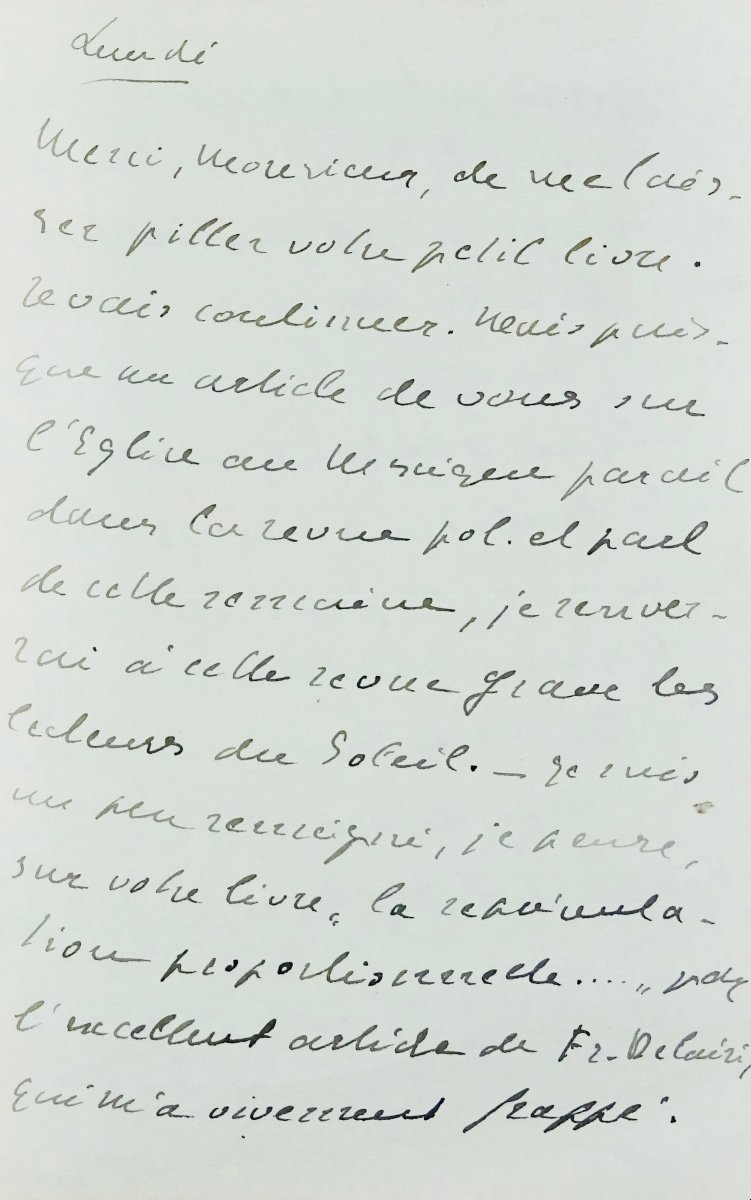 Lundi
Merci, Monsieur, de me lais-
ser piller votre petit livre.
Je vais continuer. Mais puis-
que un article de vous sur
l'Eglise au Mexique parait
dans la revue pol. et parl
de cette semaine, je renver-
rai à cette revue grave les
lecteurs du Soleil. — Je suis
un peu renseigné, je pense,
sur votre livre, "la représenta-
tion proportionnelle...." par
l'excellent article de Fr. Delaisi,
qui m'a vivement frappé.